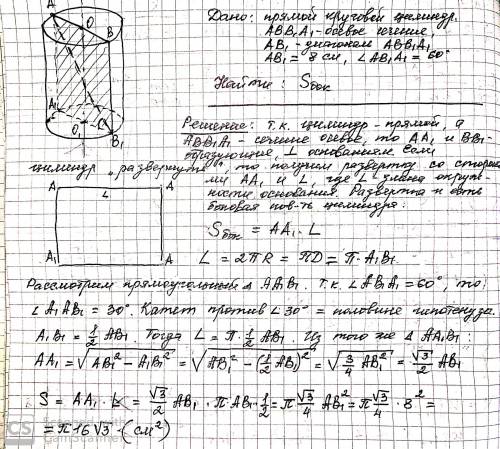 A O B
A₁ O₁ B₁
Дано: прямой круговой цилиндр.
ABB₁A₁ - осевое сечение,
AB₁ - диагональ ABB₁A₁
AB₁ = 8 см, ∠AB₁A₁ = 60°
Найти: Sбок
Решение: т.к. цилиндр - прямой, а
ABB₁A₁ - сечение осевое, то AA₁ и BB₁ -
образующие, ⊥ основаниям. Если
цилиндр "развернуть", то получим развертку со сторона-
ми AA₁ и L, где L - длина окруж-
ности основания. Развертка и есть
боковая пов-ть цилиндра:
A L A
A₁ A
Sбок = AA₁ · L
L = 2πR = πD = π · A₁B₁
Рассмотрим прямоугольный Δ AA₁B₁. т.к. ∠AB₁A₁ = 60°, то
∠A₁AB₁ = 30°. Катет против ∠30° = половине гипотенузы.
A₁B₁ = 1/2 AB₁. Тогда L = π · 1/2 AB₁. Из того же Δ AA₁B₁:
AA₁ = √(AB₁² - A₁B₁²) = √(AB₁² - (1/2 AB₁)²) = √(3/4 AB₁²) = √3/2 AB₁
S = AA₁ · L = √3/2 AB₁ · π AB₁ · 1/2 = π √3/4 AB₁² = π √3/4 · 8² =
= π16√3 (см²)
CS CamScanner